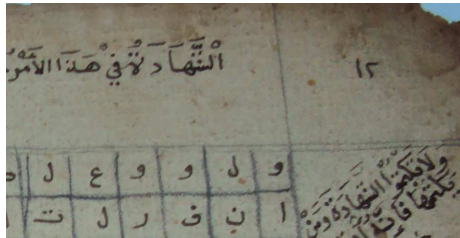 ١٢ الشَّهَادَةُ في هَذَا
و ل و و ع ل
ا ن ف ر ل ت
وَلَا تكتموا الشهادة وَمَنْ
يكتمها فَإِنَّهُ